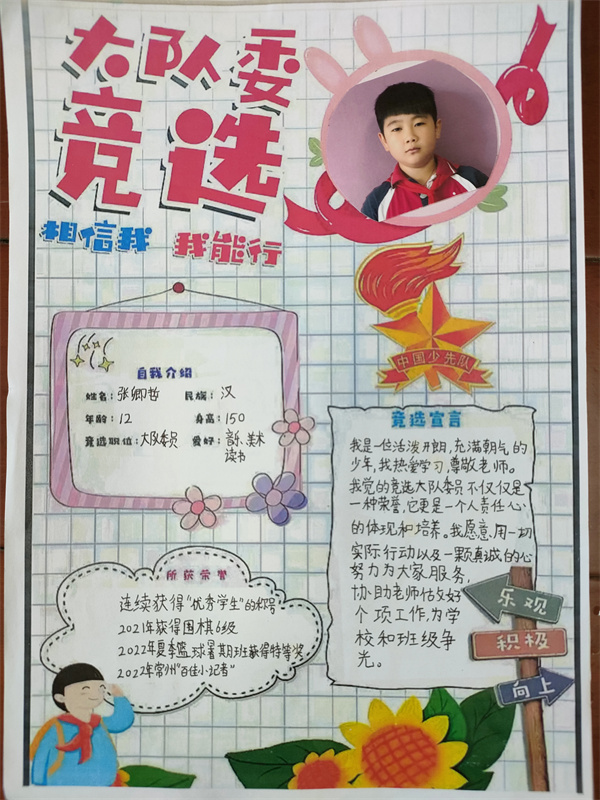 大队委
竞选
相信我 我能行
中国少先队
自我介绍
姓名：张卿哲 民族：汉
年龄：12 身高：150
竞选职位：大队委员 爱好：音乐、美术
读书
竞选宣言
我是一位活泼开朗，充满朝气的
少年，我热爱学习，尊敬老师。
我觉的竞选大队委员不仅仅是
一种荣誉，它更是一个人责任心
的体现和培养。我愿意用一切
实际行动以及一颗真诚的心
努力为大家服务，
协助老师做好
个项工作，为学
校和班级争
光。
所获荣誉
连续获得“优秀学生”的称号
2021年获得围棋6级
2022年夏季篮球暑期班获得特等奖
2022年常州“百佳小记者”
乐观
积极
向上